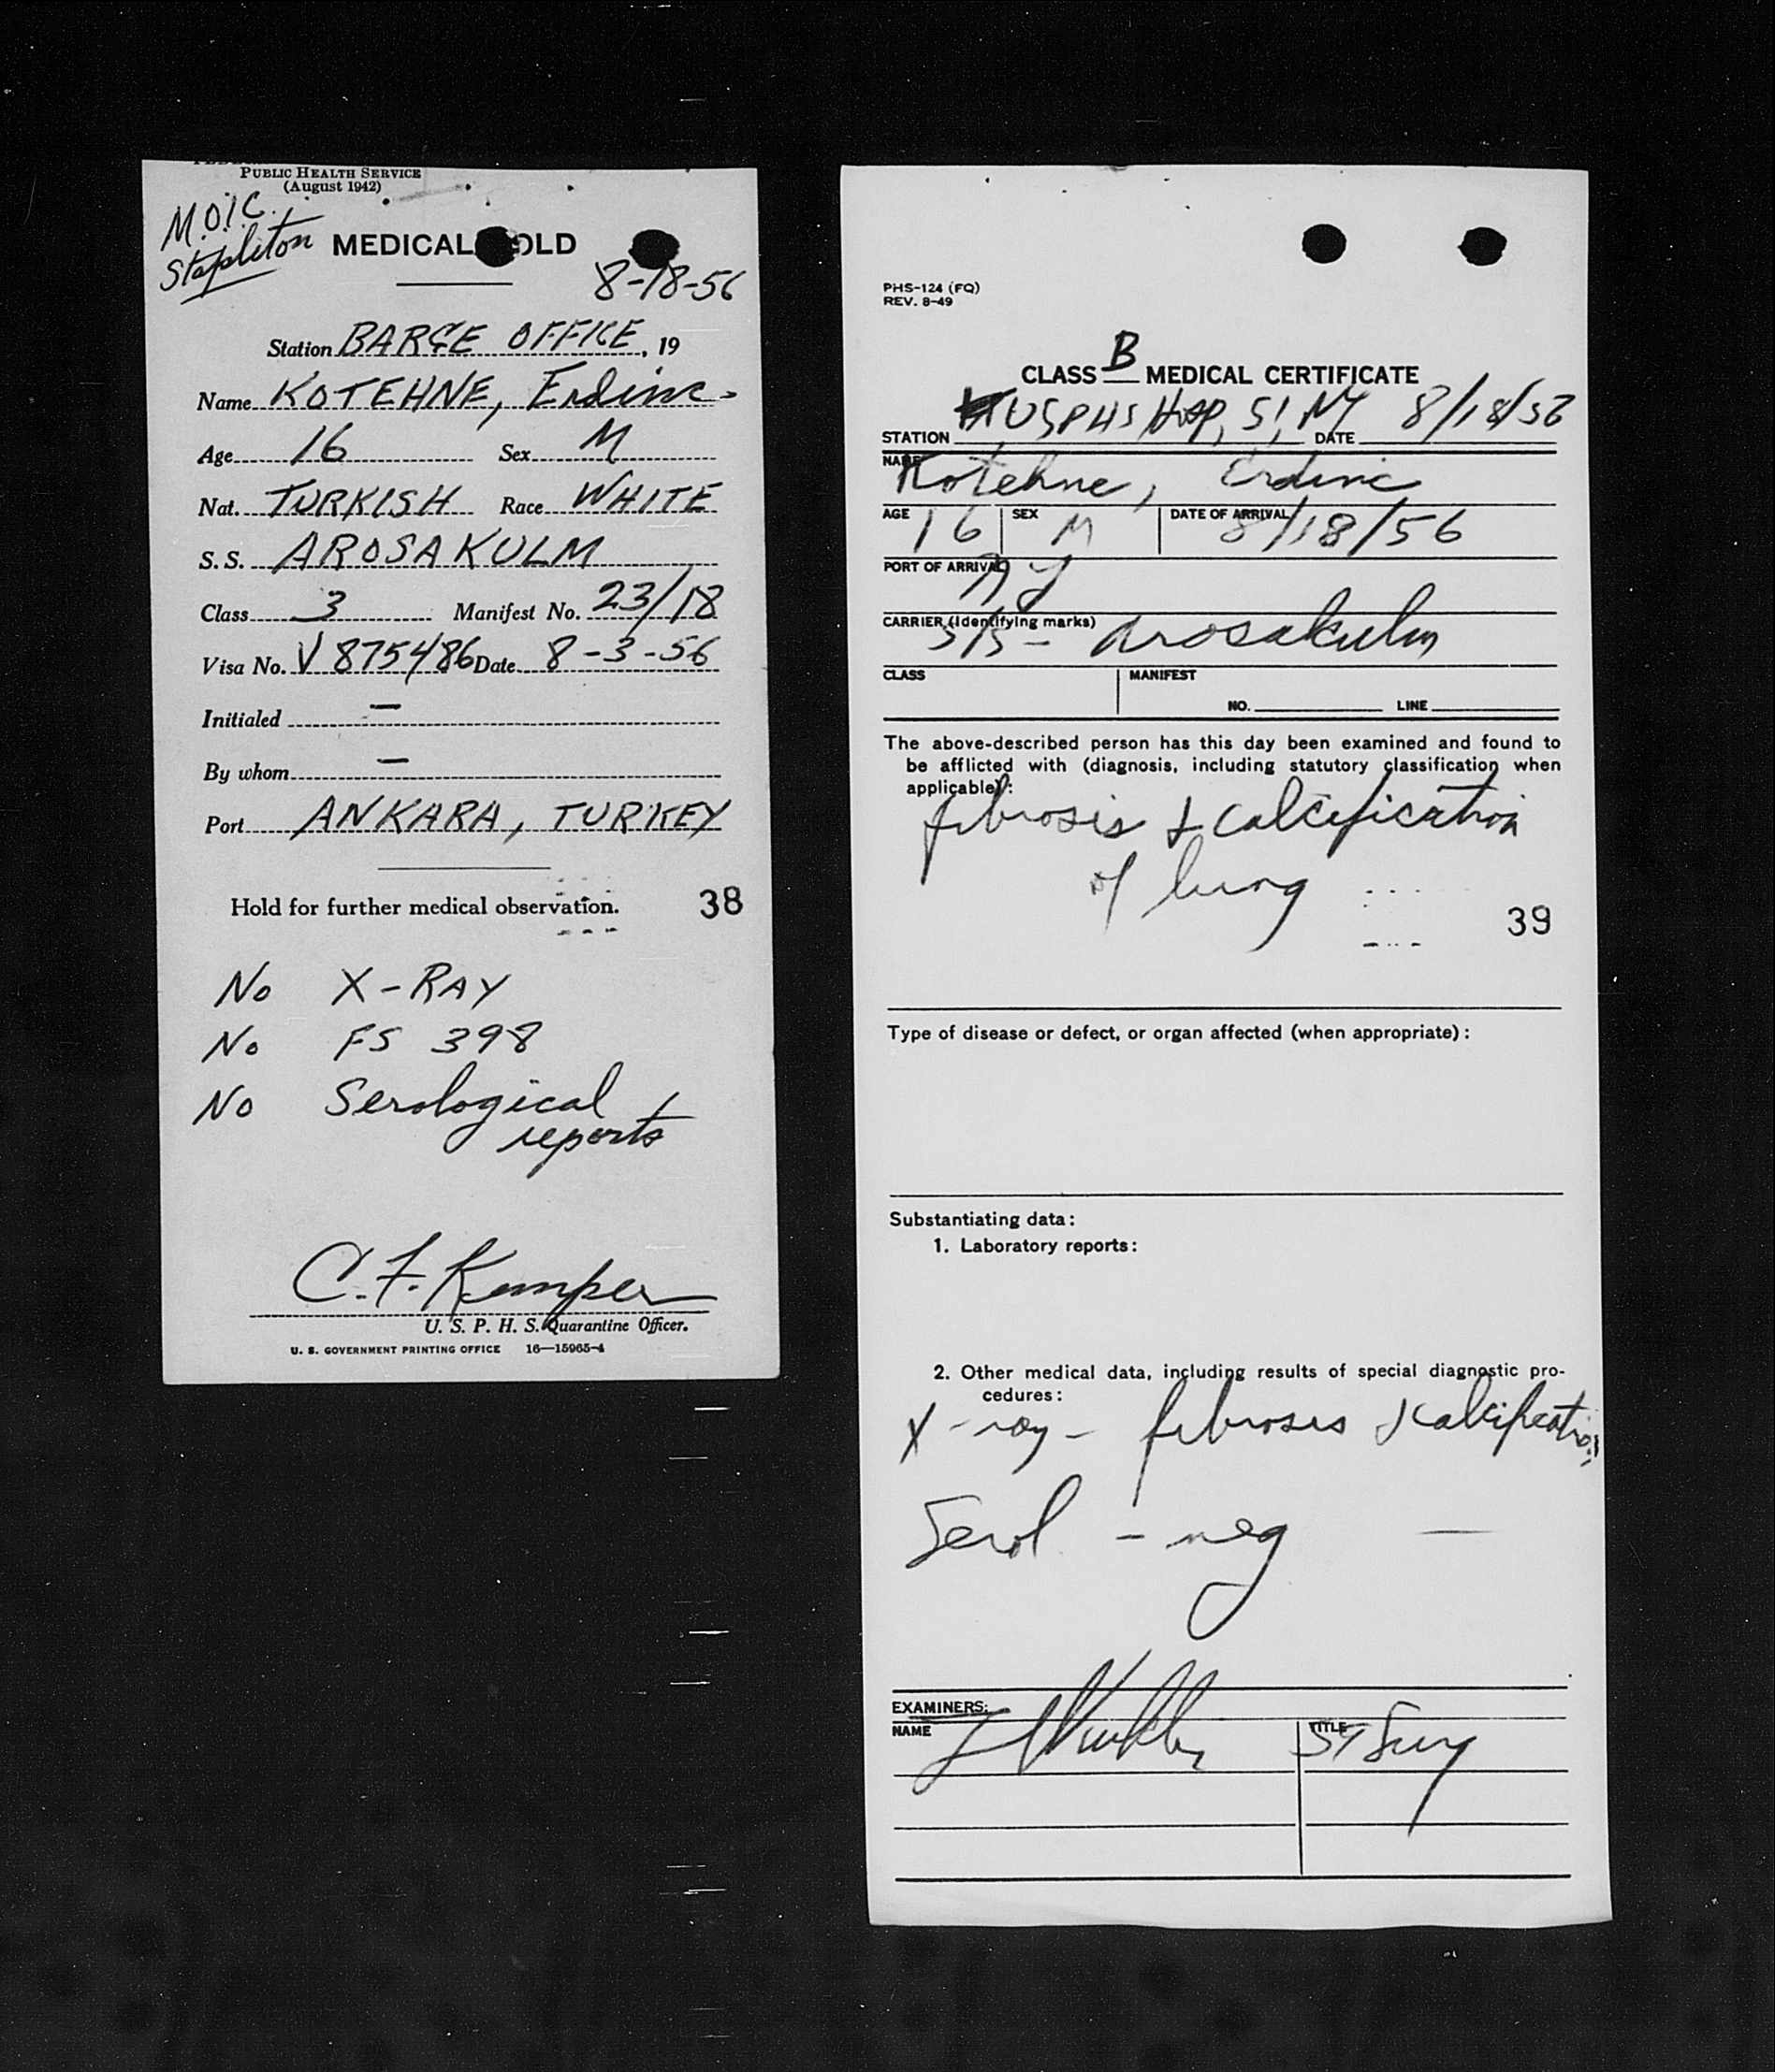 PUBLIC HEALTH SERVICE
(August 1942)
M.O.I.C.
Stapleton
MEDICAL OLD
8-18-56
Station BARGE OFFICE, 19
Name KOTEHNE, Erdinc
Age 16 Sex M
Nat. TURKISH Race WHITE
S. S. AROSA KULM
Class 3 Manifest No. 23/18
Visa No. V 875486 Date 8-3-56
Initialed —
By whom —
Port ANKARA, TURKEY
Hold for further medical observation. 38
No X-RAY
No FS 398
No Serological
reports
C. F. Kemper
U. S. P. H. S. Quarantine Officer.
U. S. GOVERNMENT PRINTING OFFICE 16—15965-4
PHS-124 (FQ)
REV. 8-49
CLASS B MEDICAL CERTIFICATE
STATION USPHS Hosp, SI, NY DATE 8/18/56
NAME Kotehne, Erdinc
AGE 16 SEX M DATE OF ARRIVAL 8/18/56
PORT OF ARRIVAL NY
CARRIER (Identifying marks) S/S - Arosakulm
CLASS MANIFEST
NO. LINE
The above-described person has this day been examined and found to
be afflicted with (diagnosis, including statutory classification when
applicable):
fibrosis & calcification
of lung
39
Type of disease or defect, or organ affected (when appropriate):
Substantiating data:
1. Laboratory reports:
2. Other medical data, including results of special diagnostic pro-
cedures:
X-ray - fibrosis & calcification
Serol - neg
EXAMINERS:
NAME TITLE